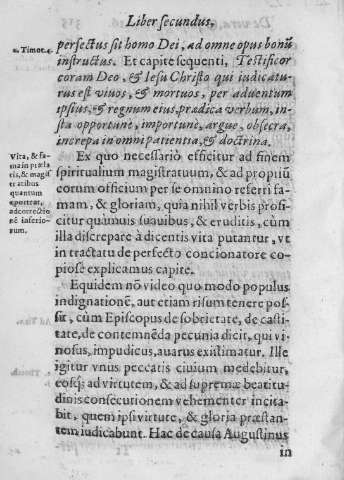 Liber secundus,
2. Timot. 4.
perfectus sit homo Dei, ad omne opus bonũ
instructus. Et capite sequenti, Testificor
coram Deo, & Iesu Christo qui iudicatu-
rus est viuos, & mortuos, per aduentum
ipsius, & regnum eius, prædica verbum, in-
sta opportune, importune, argue, obsecra,
increpa in omni patientia, & doctrina.
Vita, & fa-
ma in præla
tis, & magis
tratibus
quantum
oporteat,
ad correctio
nē inferio-
rum.
Ex quo necessariò efficitur ad finem
spiritualium magistratuum, & ad propriũ
eorum officium per se omnino referri fa-
mam, & gloriam, quia nihil verbis profi-
citur quámuis suauibus, & eruditis, cùm
illa discrepare à dicentis vita putantur, vt
in tractatu de perfecto concionatore co-
piose explicamus capite.
Equidem nō video quo modo populus
indignationē, aut etiam risum tenere pos-
sit, cùm Episcopus de sobrietate, de casti-
tate, de contemnēda pecunia dicit, qui vi-
nosus, impudicus, auarus existimatur. Ille
igitur vnus peccatis ciuium medebitur,
eosq; ad virtutem, & ad supremæ beatitu-
dinis consecutionem vehementer incita-
bit, quem ipsi virtute, & gloria præstan-
tem iudicabunt. Hac de causa Augustinus
in